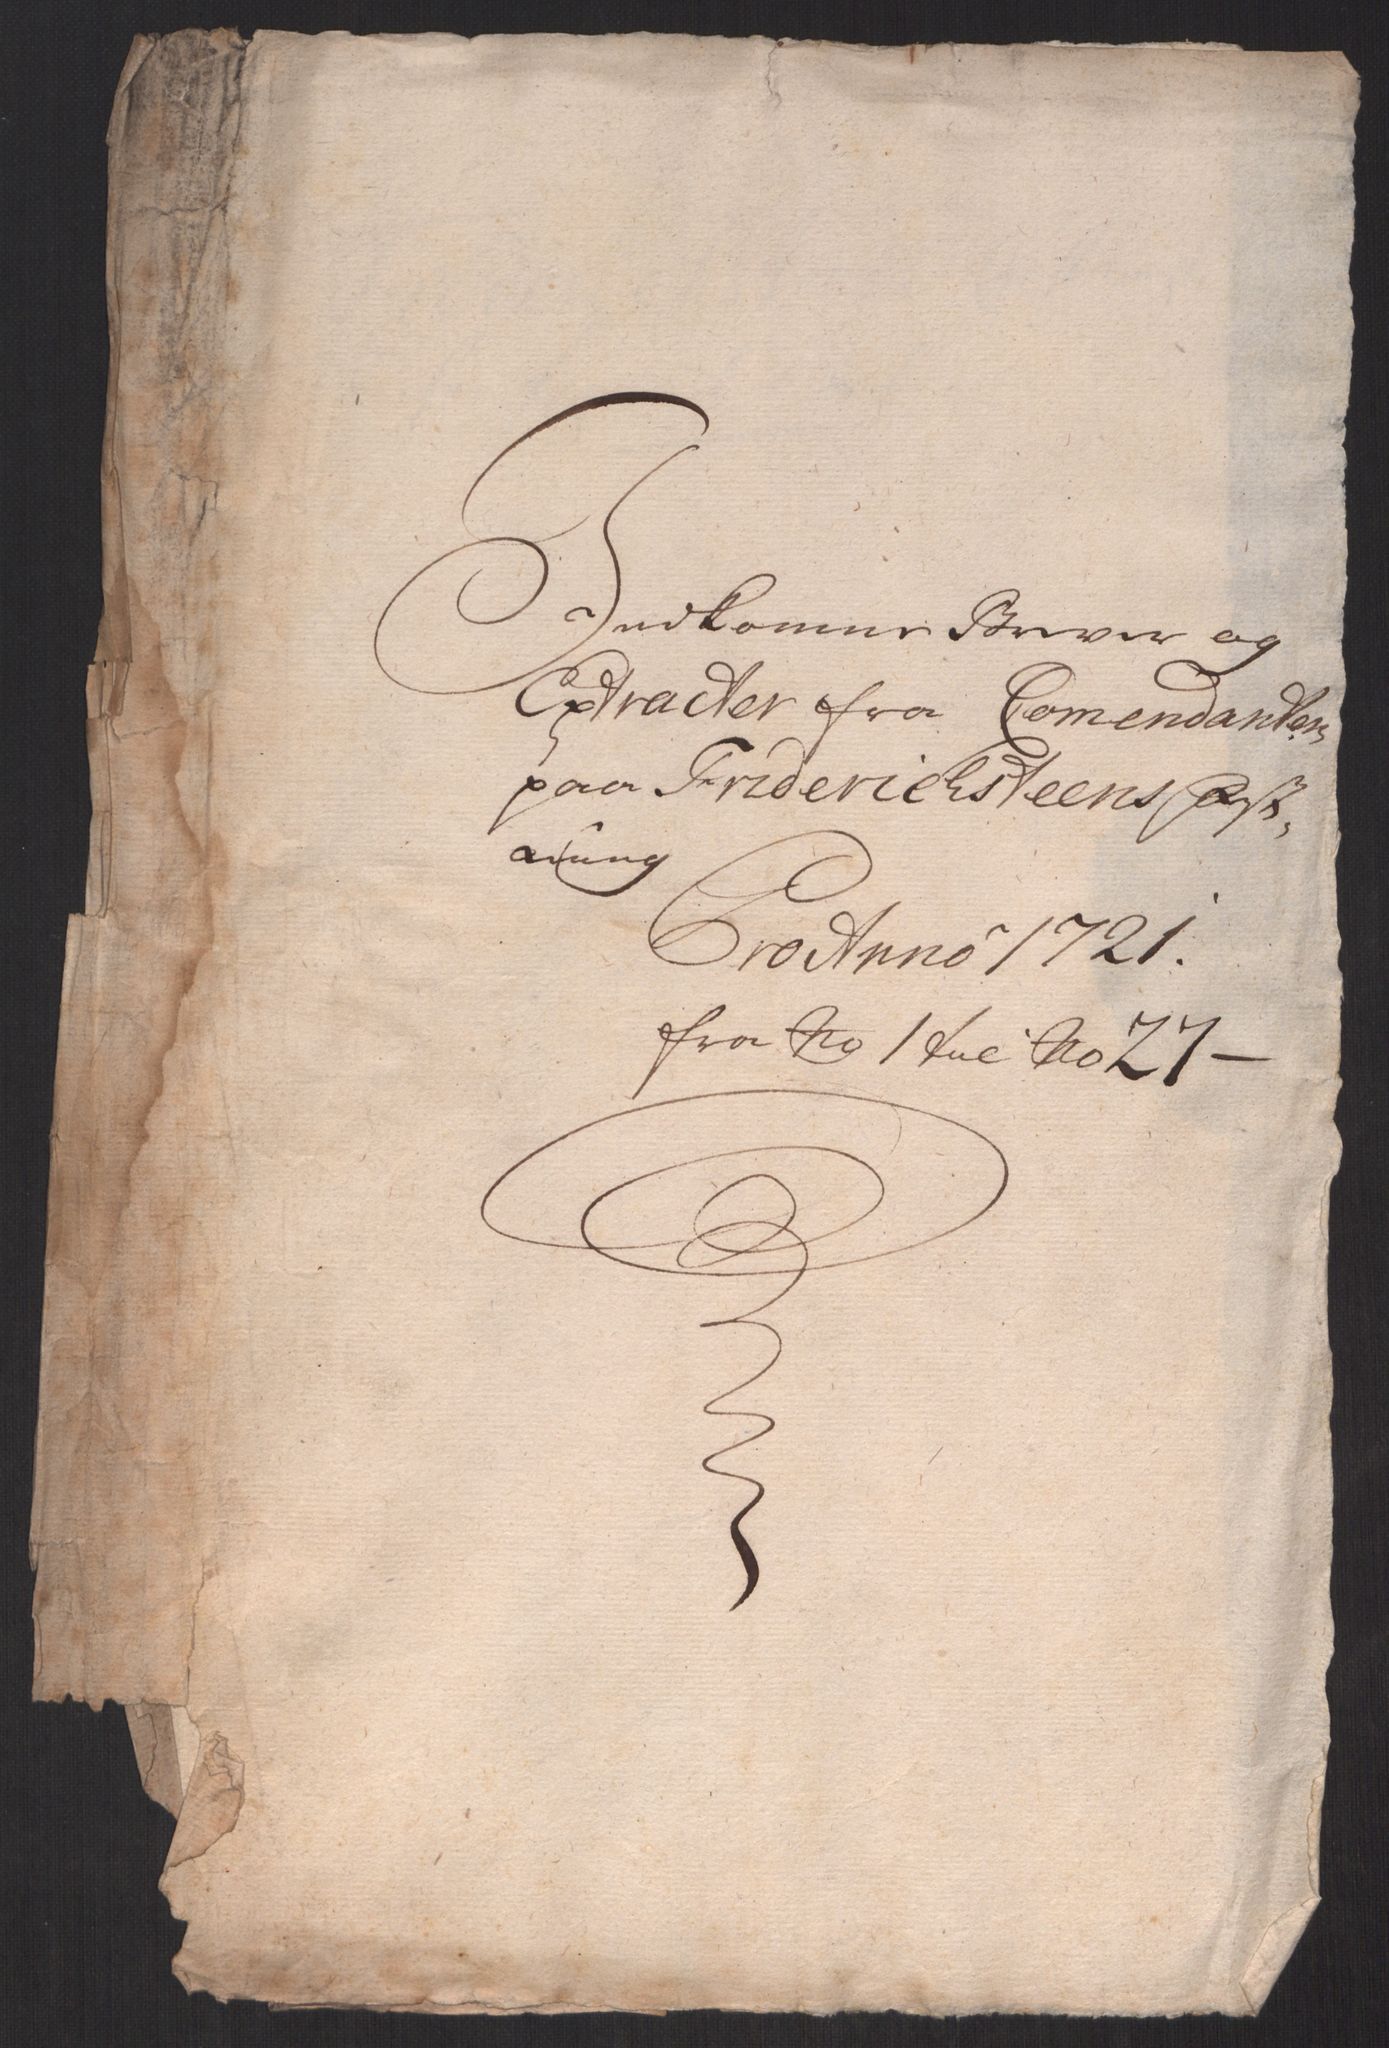 Indkomne Brever og
Extracter fra Comendanten
paa Friderichsteens Fæst,
ning
Pro Anno 1721.
fra No 1 till No 27 —